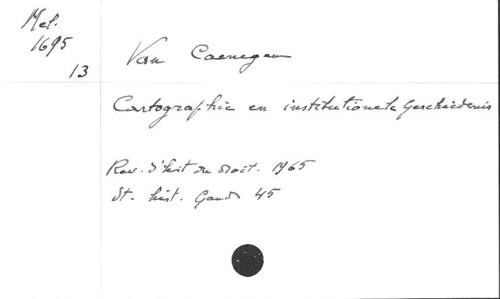 Mel.
1695
13
Van Caenegem
Cartographie en institutionele geschiedenis
Rev. d'hist du droit. 1965
St. hist. Gand 45